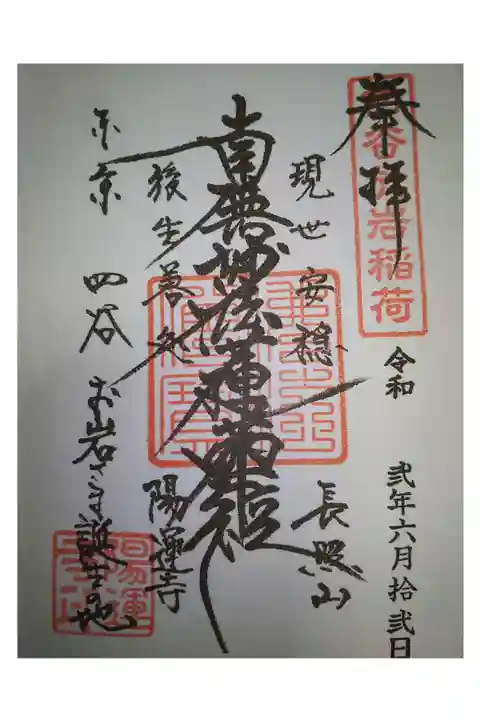 奉拝
四谷於岩稲荷
令和 弐年六月拾弐日
現世安穏 長照山
南無妙法蓮華経
後生善処 陽運寺
東京 四谷 お岩さま誕生の地
陽運